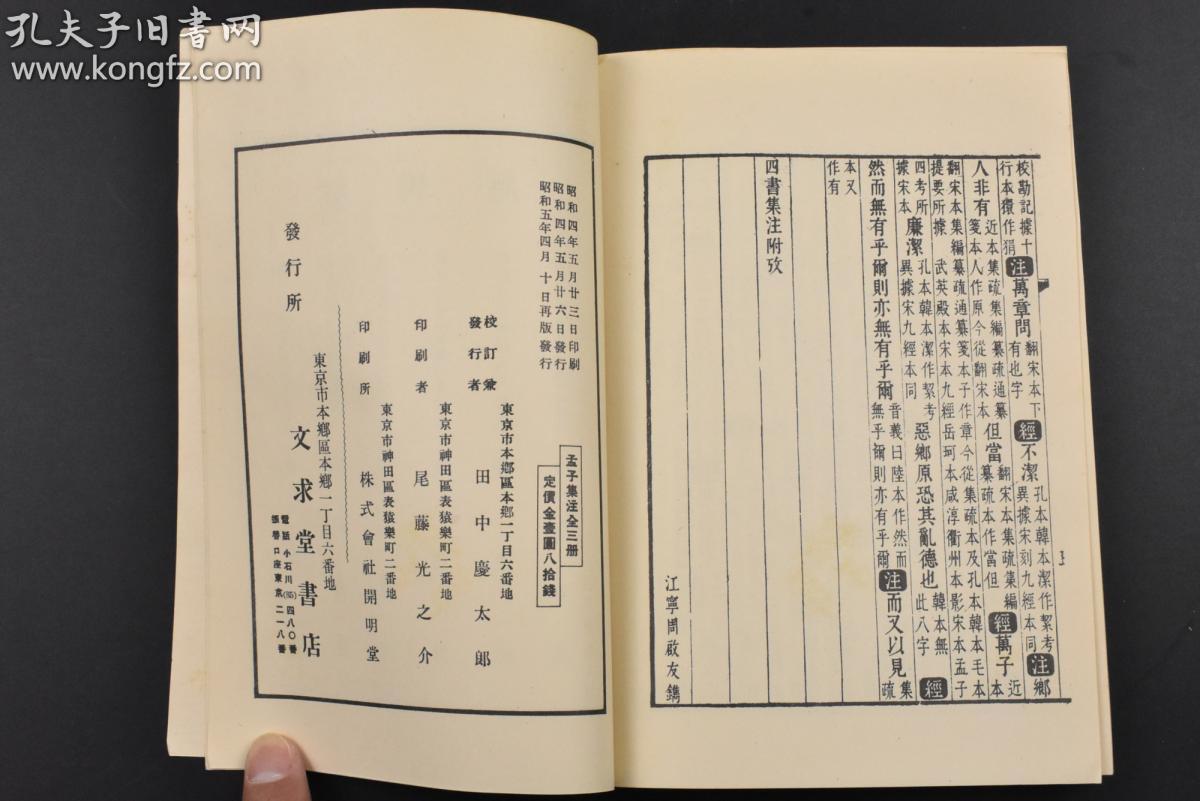 孔夫子旧书网
www.kongfz.com
校勘記據十行本獧作狷注萬章問翻宋本下有也字經不潔孔本韓本潔作絜考異據宋刻九經本同注鄉
人非有近本集疏集編纂疏通纂箋本人作原今從翻宋本但當翻宋本集疏集編纂疏本作當但經萬子近本
翻宋本集編纂疏通纂箋本子作章今從集疏本及孔本韓本毛本
提要所據武英殿本宋本九經岳珂本咸淳衢州本影宋本孟子
四考所據宋本廉潔孔本韓本潔作絜考異據宋九經本同惡鄉原恐其亂德也韓本無此八字經
然而無有乎爾則亦無有乎爾音義曰陸本作然而無乎爾則亦有乎爾注而又以見集疏
本又作有
四書集注附攷
江寧周啟友鐫
孟子集注全三册
定價金壹圓八拾錢
昭和四年五月廿三日印刷
昭和四年五月廿六日發行
昭和五年四月十日再版發行
東京市本鄉區本鄉一丁目六番地
校訂兼發行者 田中慶太郎
東京市神田區表猿樂町二番地
印刷者 尾藤光之介
東京市神田區表猿樂町二番地
印刷所 株式會社開明堂
發行所
東京市本鄉區本鄉一丁目六番地
文求堂書店
電話小石川(85)四八〇番
振替口座東京二一八番